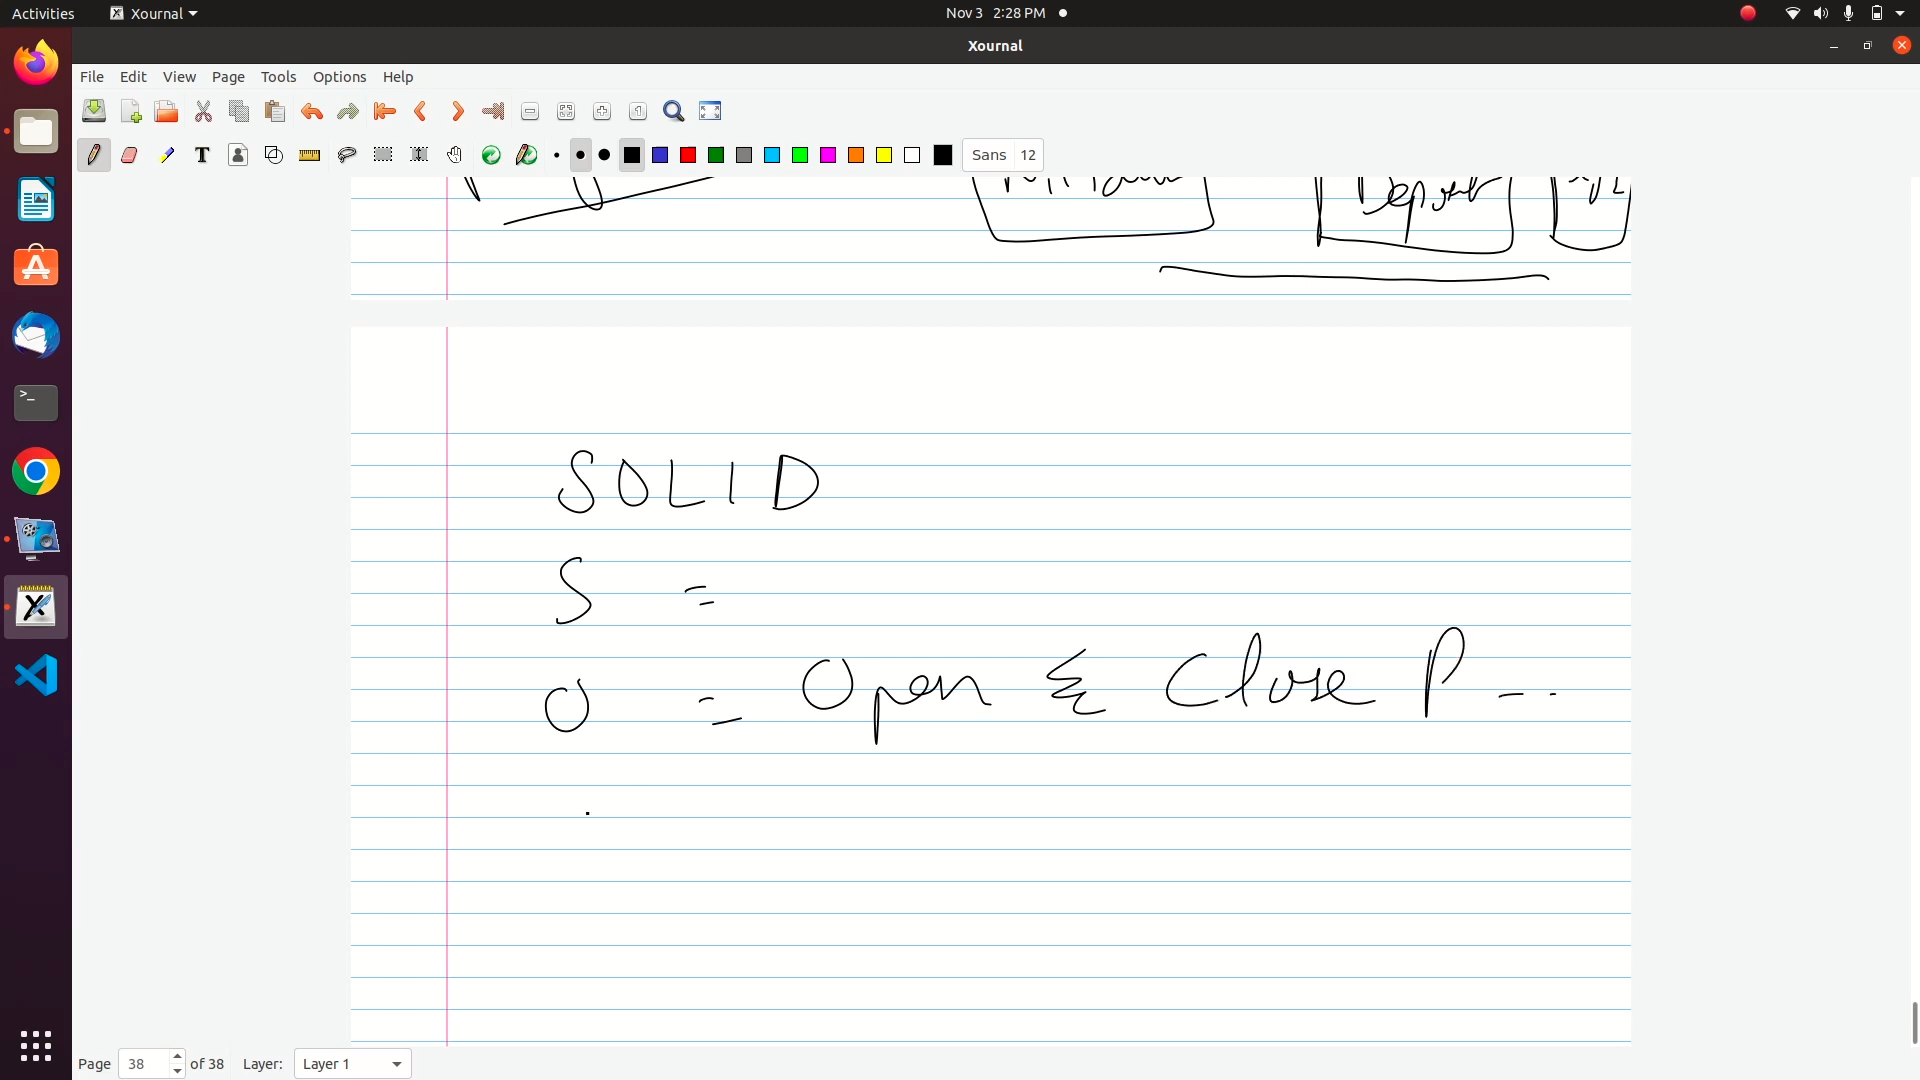 Activities Xournal Nov 3 2:28 PM
Xournal
File Edit View Page Tools Options Help
T Sans 12
SOLID
S =
O = Open & Close P - ..
Page 38 of 38 Layer: Layer 1